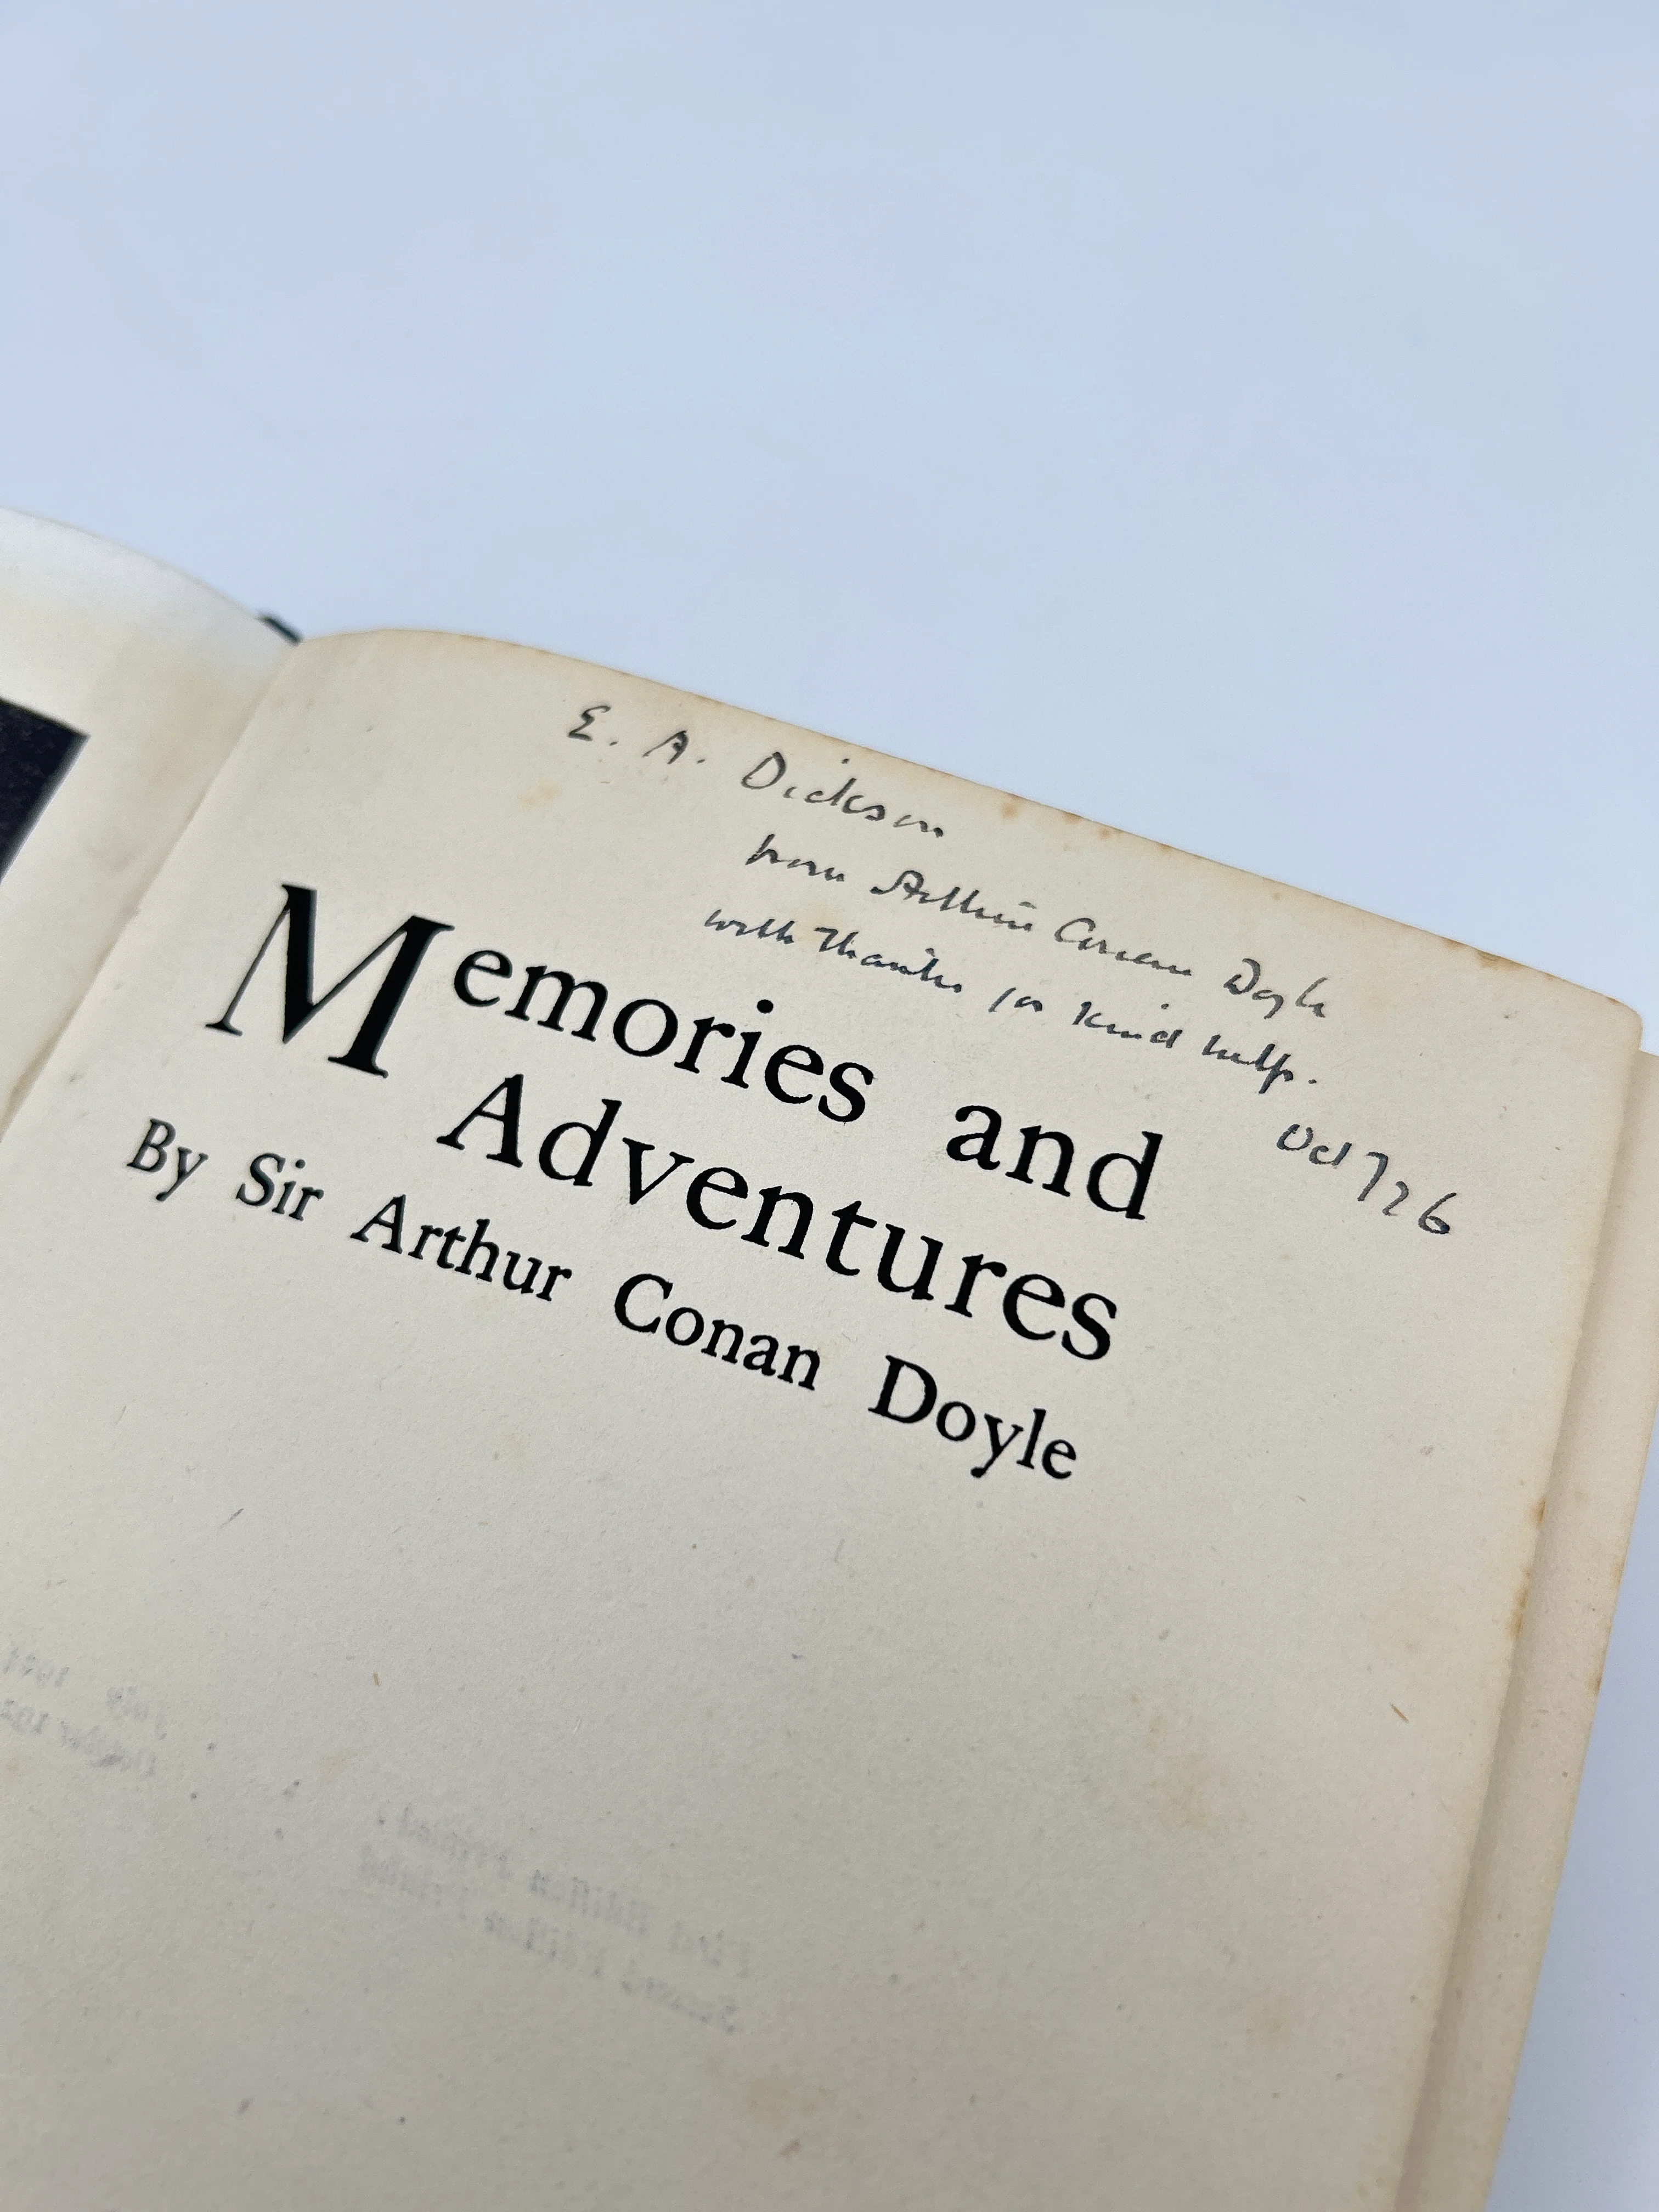 E. A. Dickson
from Arthur Conan Doyle
with Thanks for Kind help.
Oct 7/26
Memories and
Adventures
By Sir Arthur Conan Doyle